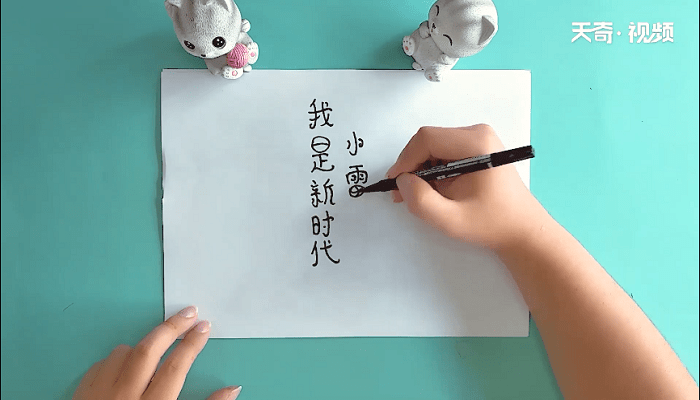 天奇·视频
我是新时代
小雷